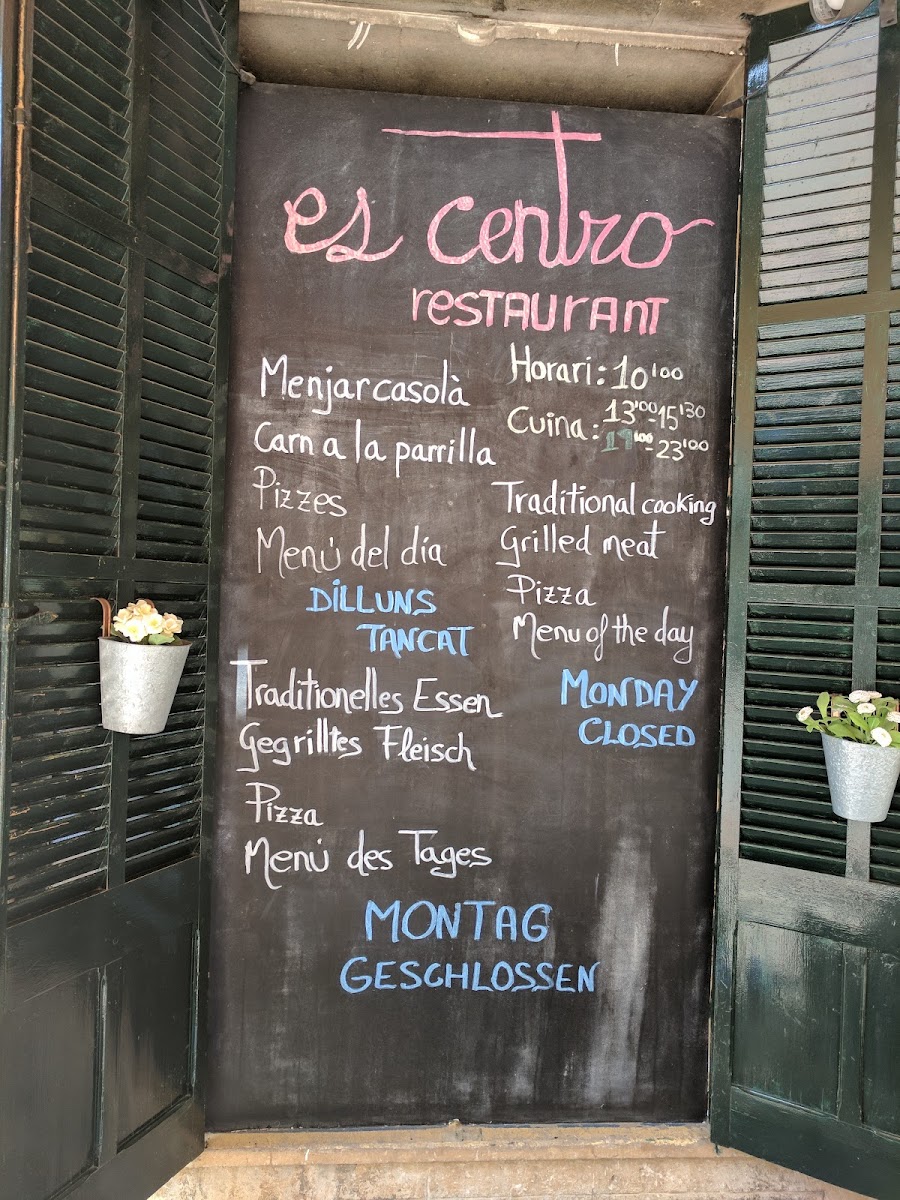 es centro
restaurant
Menjar casolà
Carn a la parrilla
Pizzes
Menú del día
DILLUNS
TANCAT
Horari: 10'00
Cuina: 13'00-15'30
19'00-23'00
Traditional cooking
Grilled meat
Pizza
Menu of the day
MONDAY
CLOSED
Traditionelles Essen
Gegrilltes Fleisch
Pizza
Menú des Tages
MONTAG
GESCHLOSSEN